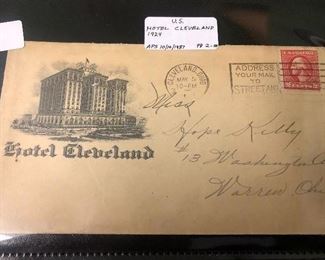 U.S.
HOTEL CLEVELAND
1924
APS 10/10/1987
CLEVELAND, OHIO
MAY 5
10-PM
ADDRESS
YOUR MAIL
TO
STREET AND
Miss
Hope Kelly
#13 Washington
Warren, Ohio
Hotel Cleveland